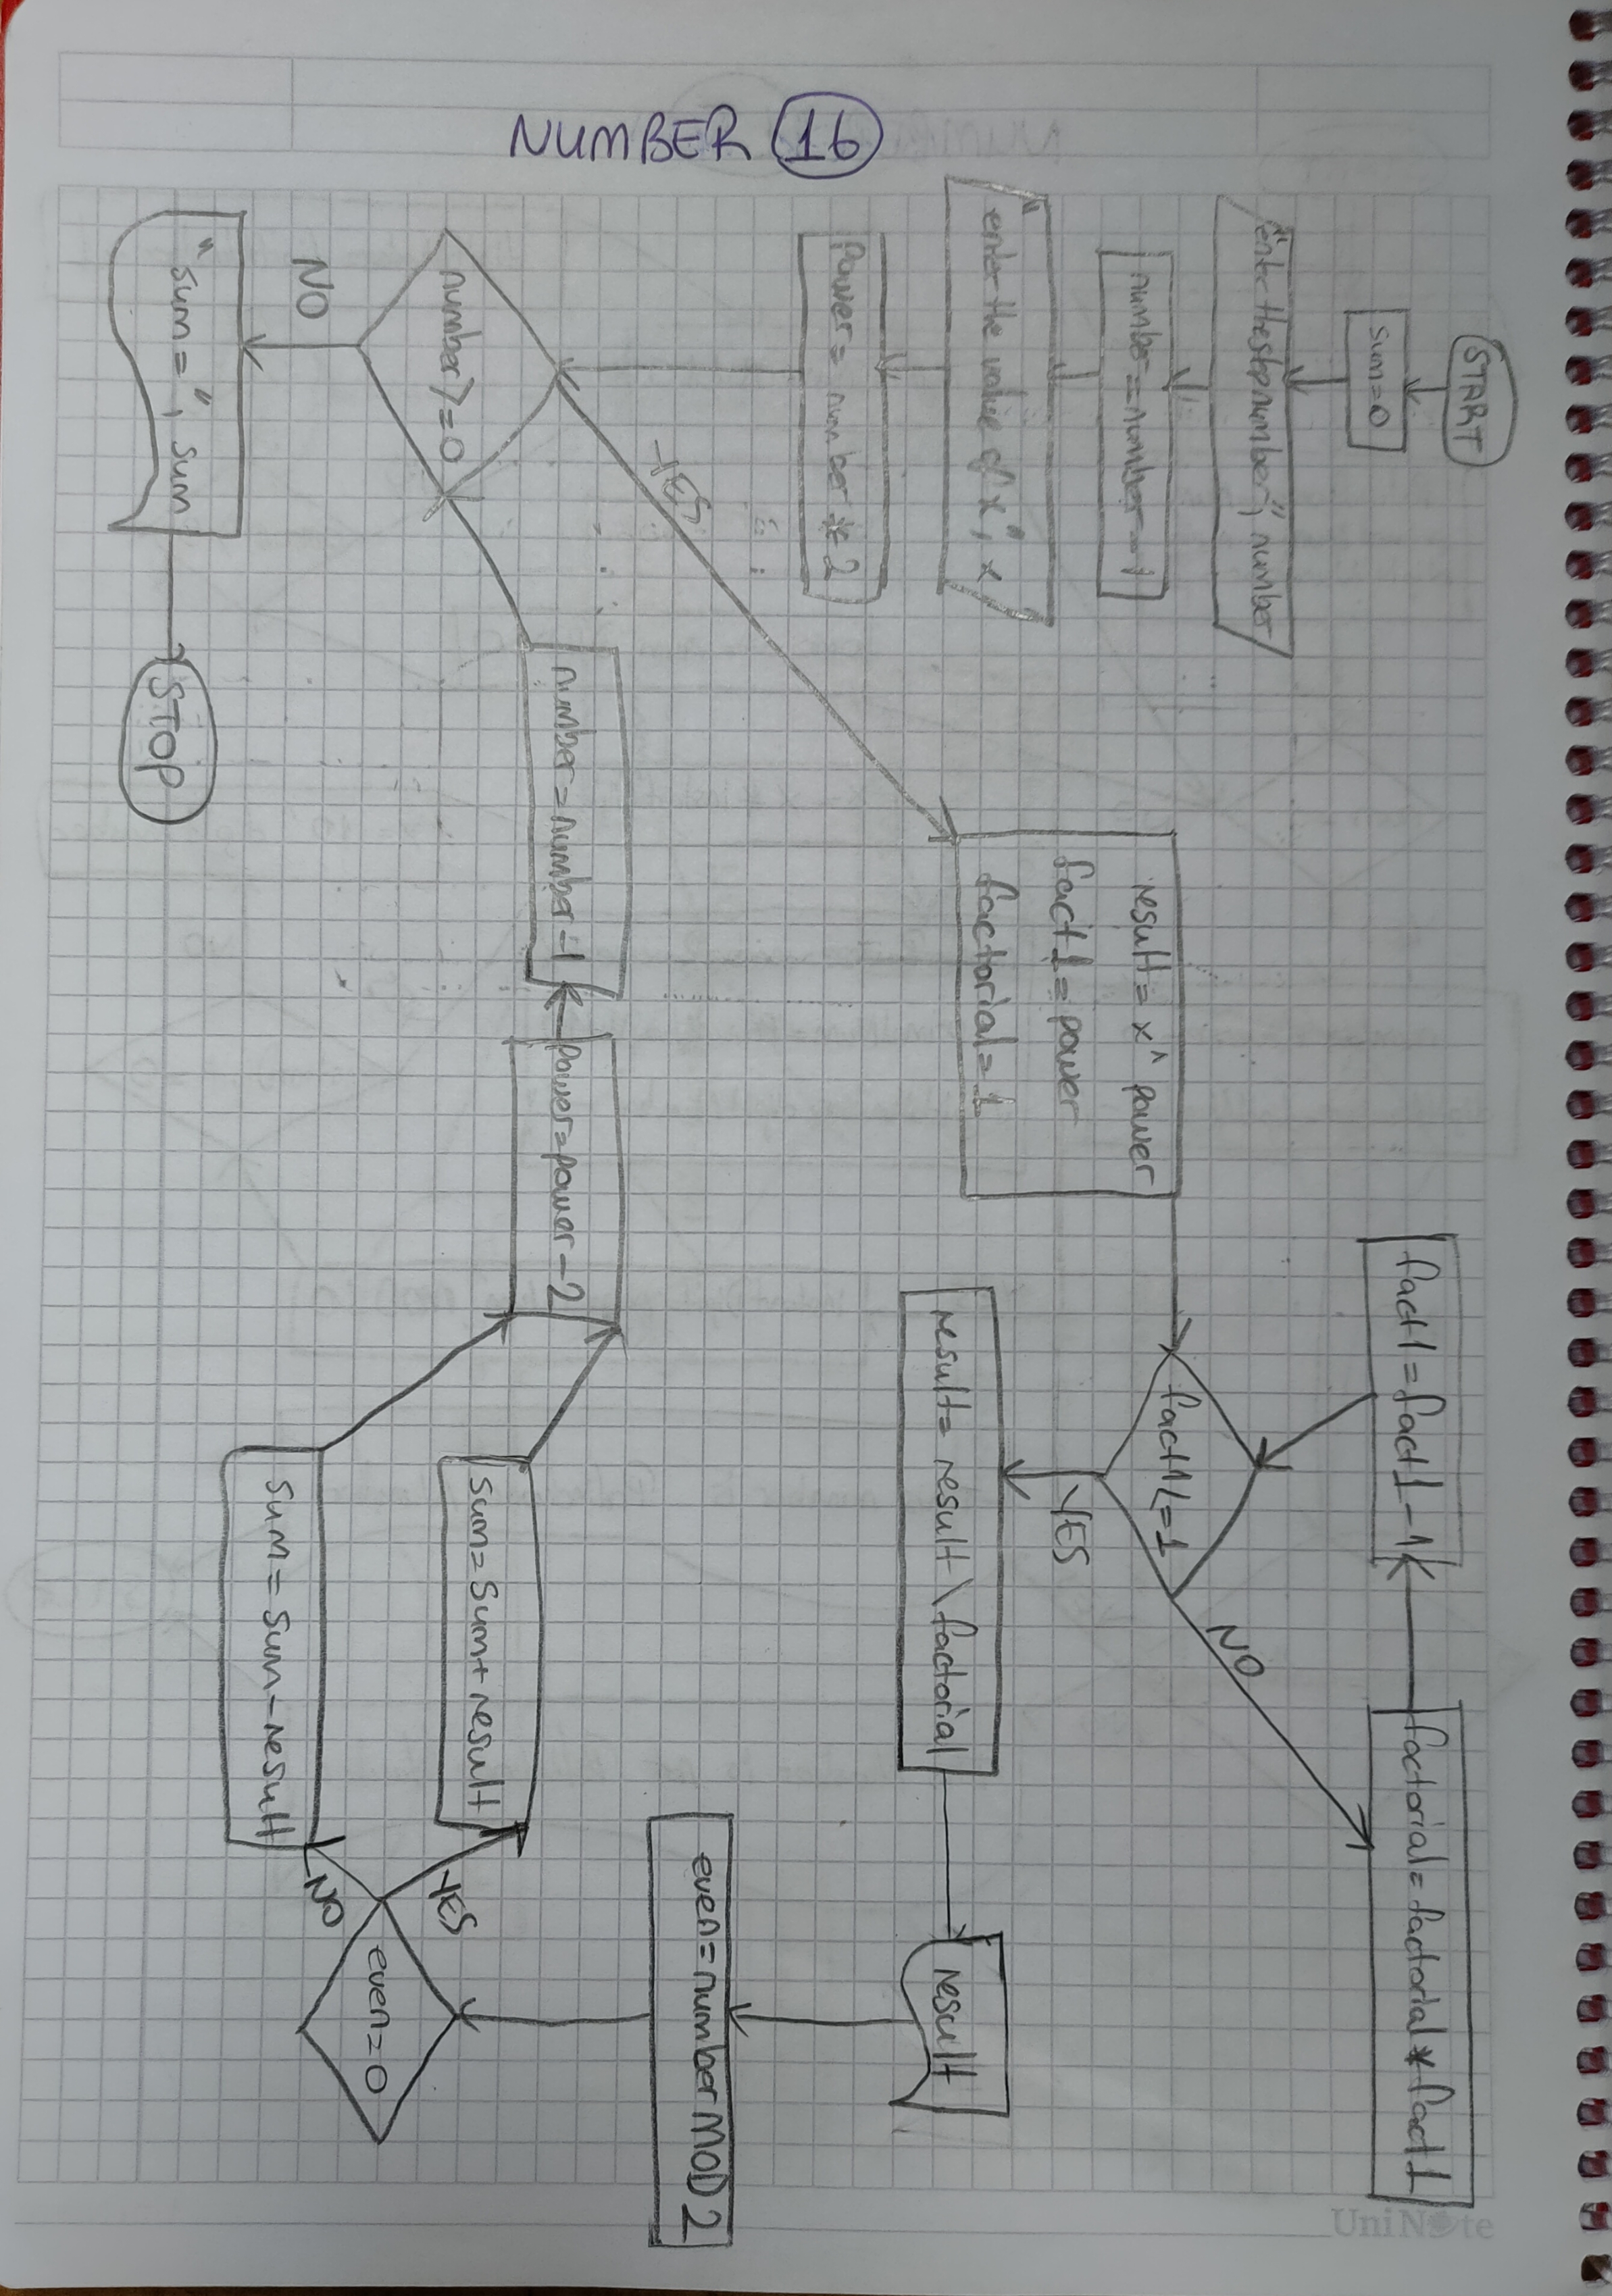 NUMBER 16
START
sum=0
"enter the step number", number
number=number-1
enter the value of x", x
Power= number * 2
number>=0
YES
NO
"sum=", sum
STOP
result= x^power
fact1=power
factorial=1
fact1<=1
NO
factorial=factorial*fact1
fact1=fact1-1
YES
result= result\factorial
result
even=number MOD 2
even=0
YES
sum=sum+result
NO
sum=sum-result
power=power-2
number=number-1
UniNote